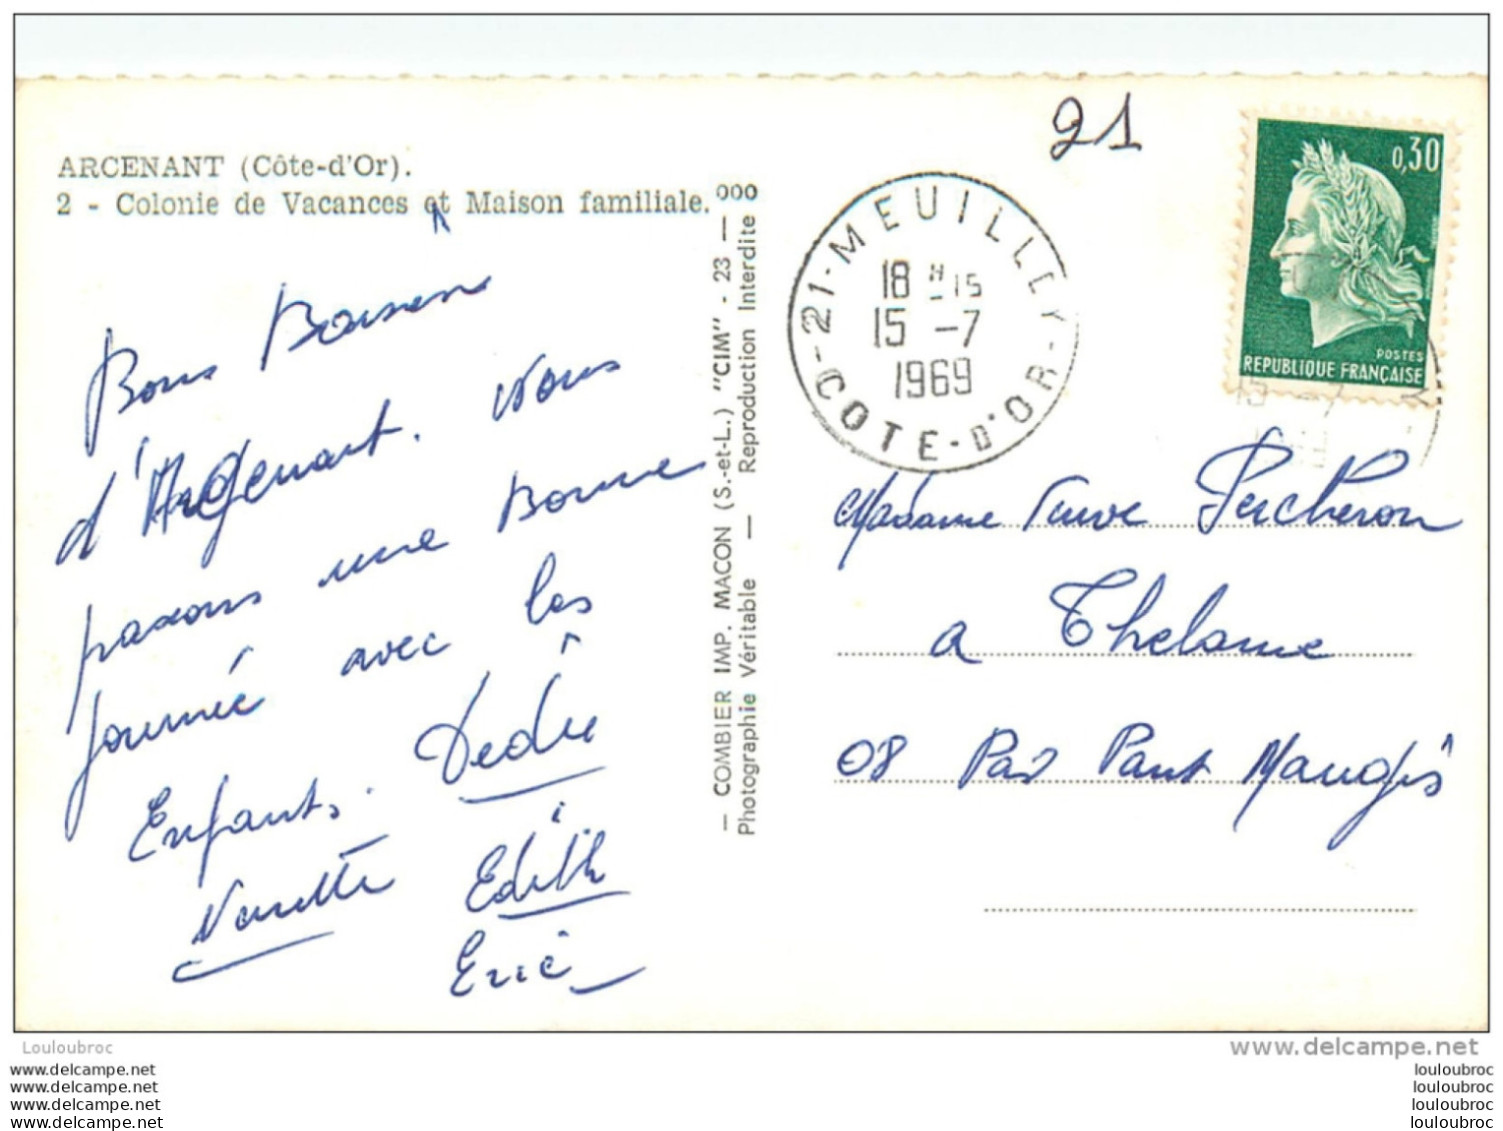 ARCENANT (Côte-d'Or).
2 - Colonie de Vacances et Maison familiale.
21
0,30
POSTES
REPUBLIQUE FRANÇAISE
21-MEUILLEY
18 H -15
15 -7
1969
COTE-D'OR
Bons Baisers
d'Argenant. Nous
passons une Bonne
journée avec les
Enfants. Dédée
Edith
Eric
— COMBIER IMP. MACON (S.-et-L.) "CIM" - 23 — 000
Photographie Véritable — Reproduction Interdite
Madame Veuve Percheron
a Thelonne
08 Par Pont Maugis
Louloubroc
www.delcampe.net
www.delcampe.net
www.delcampe.net
www.delcampe.net
www.delcampe.net
louloubroc
louloubroc
louloubroc
louloubroc